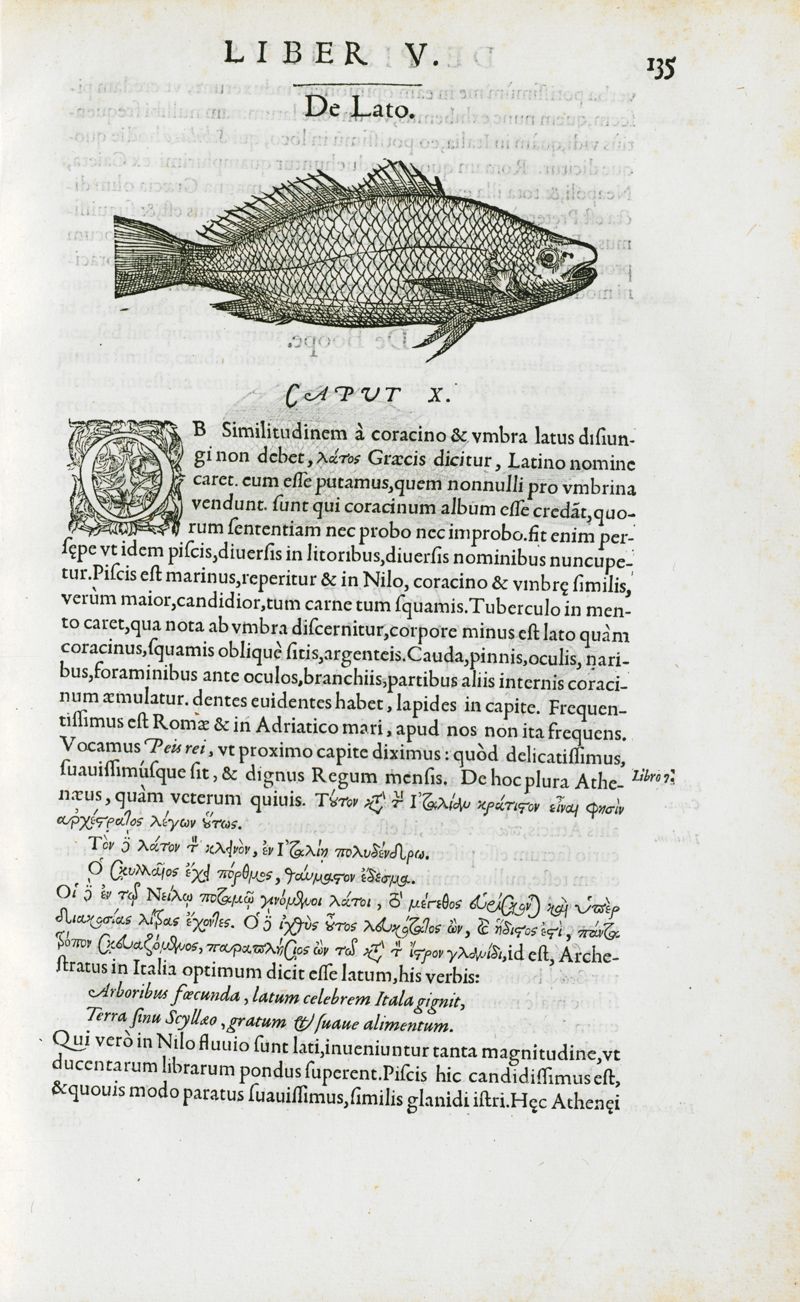 LIBER V.
135
De Lato.
CAPVT X.
OB Similitudinem à coracino & vmbra latus disiun-
gi non debet, λάτος Græcis dicitur, Latino nomine
caret. eum esse putamus, quem nonnulli pro vmbrina
vendunt. sunt qui coracinum album esse credāt, quo-
rum sententiam nec probo nec improbo. fit enim per-
sępe vt idem piscis, diuersis in litoribus, diuersis nominibus nuncupe-
tur. Piscis est marinus, reperitur & in Nilo, coracino & vmbrę similis,
verùm maior, candidior, tum carne tum squamis. Tuberculo in men-
to caret, qua nota ab vmbra discernitur, corpore minus est lato quàm
coracinus, squamis obliquè sitis, argenteis. Cauda, pinnis, oculis, nari-
bus, foraminibus ante oculos, branchiis, partibus aliis internis coraci-
num æmulatur. dentes euidentes habet, lapides in capite. Frequen-
tissimus est Romæ & in Adriatico mari, apud nos non ita frequens.
Vocamus Peis rei, vt proximo capite diximus: quòd delicatissimus,
suauissimúsque sit, & dignus Regum mensis. De hoc plura Athe-
Libro 7.
næus, quàm veterum quiuis. Τοῦτον κατὰ τὴν Ἰταλίαν κράτιστον εἶναι φησὶν
ἀρχέστρατος λέγων οὕτως.
Τὸν δὲ λάτον τὸν κλεινὸν, ἐν Ἰταλίῃ πολυδένδρῳ.
Ὁ Σκυλλαῖος ἔχει πόρθμος, θαύμαστον ἔδεσμα.
Οἱ δὲ ἐν τῷ Νείλῳ ποταμῷ γινόμενοι λάτοι, τὸ μέγεθος εὑρίσκονται καὶ ὑπὲρ
διακοσίας λίτρας ἔχοντες. Ὁ δὲ ἰχθὺς οὗτος λευκότατος ὢν, καὶ ἥδιστός ἐστι, πάντα
τρόπον σκευαζόμενος, παραπλήσιος ὢν τῷ κατὰ τὸν ἴστρον γλανίδι, id est, Arche-
stratus in Italia optimum dicit esse latum, his verbis:
Arboribus fœcunda, latum celebrem Itala gignit,
Terra sinu Scyllæo, gratum & suaue alimentum.
Qui verò in Nilo fluuio sunt lati, inueniuntur tanta magnitudine, vt
ducentarum librarum pondus superent. Piscis hic candidissimus est,
& quouis modo paratus suauissimus, similis glanidi istri. Hęc Athenęi